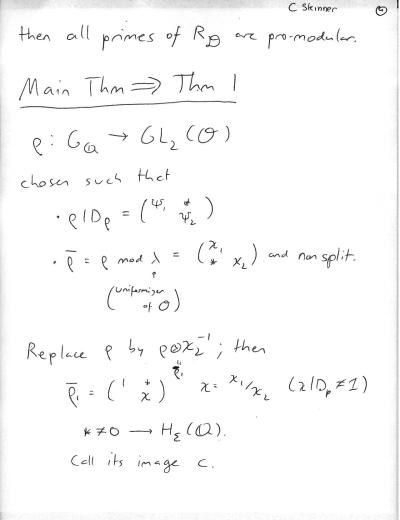 C Skinner ⑤
then all primes of R_𝒟 are pro-modular.
Main Thm ⟹ Thm 1
ρ : G_ℚ → GL₂(𝒪)
chosen such that
· ρ|D_p = (ψ₁ * ψ₂)
· ρ̄ = ρ mod λ = (χ₁ * χ₂) and non split.
(uniformizer of 𝒪)
Replace ρ by ρ⊗χ₂⁻¹ ; then
ρ̄₁ = (1 * χ) χ = χ₁/χ₂ (χ|D_p ≠ 1)
* ≠ 0 → H_Σ(ℚ).
Call its image c.